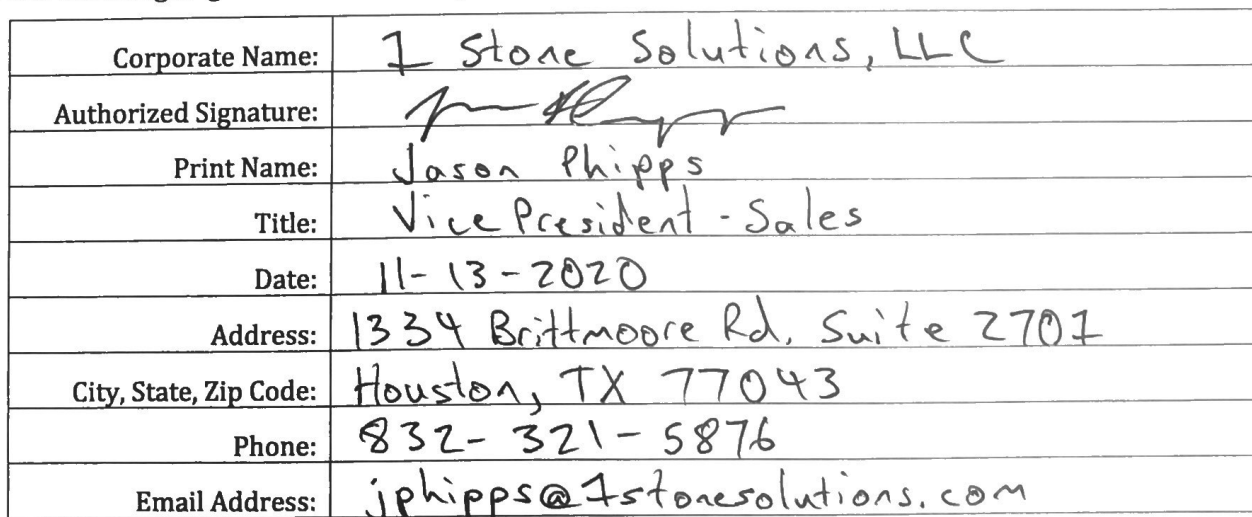 Corporate Name: 1 Stone Solutions, LLC
Authorized Signature:
Print Name: Jason Phipps
Title: Vice President - Sales
Date: 11-13-2020
Address: 1334 Brittmoore Rd, Suite 2701
City, State, Zip Code: Houston, TX 77043
Phone: 832-321-5876
Email Address: jphipps@1stonesolutions.com